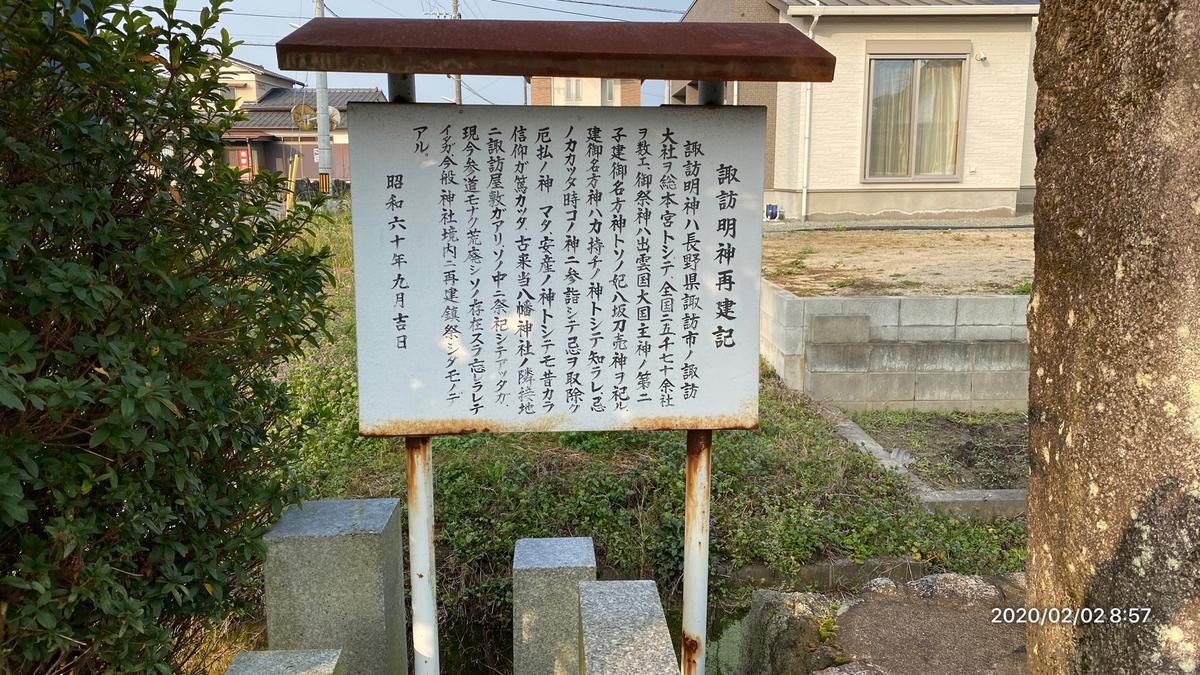 諏訪明神再建記
諏訪明神ハ長野県諏訪市ノ諏訪
大社ヲ総本宮トシテ、全国ニ五千七十余社
ヲ数エ、御祭神ハ出雲国大国主神ノ第二
子建御名方神トソノ妃八坂刀売神ヲ祀ル。
建御名方神ハカ持チノ神トシテ知ラレ忌
ノカカッタ時コノ神ニ参詣シテ忌ヲ取除ク
厄払ノ神 マタ、安産ノ神トシテモ昔カラ
信仰ガ篤カッタ。古来当八幡神社ノ隣接地
ニ諏訪屋敷ガアリ、ソノ中ニ祭祀シテアッタガ、
現今参道モナク荒廃シソノ存在スラ忘レラレテ
イタガ今般神社境内ニ再建鎮祭シタモノデ
アル。
昭和六十年九月吉日
2020/02/02 8:57